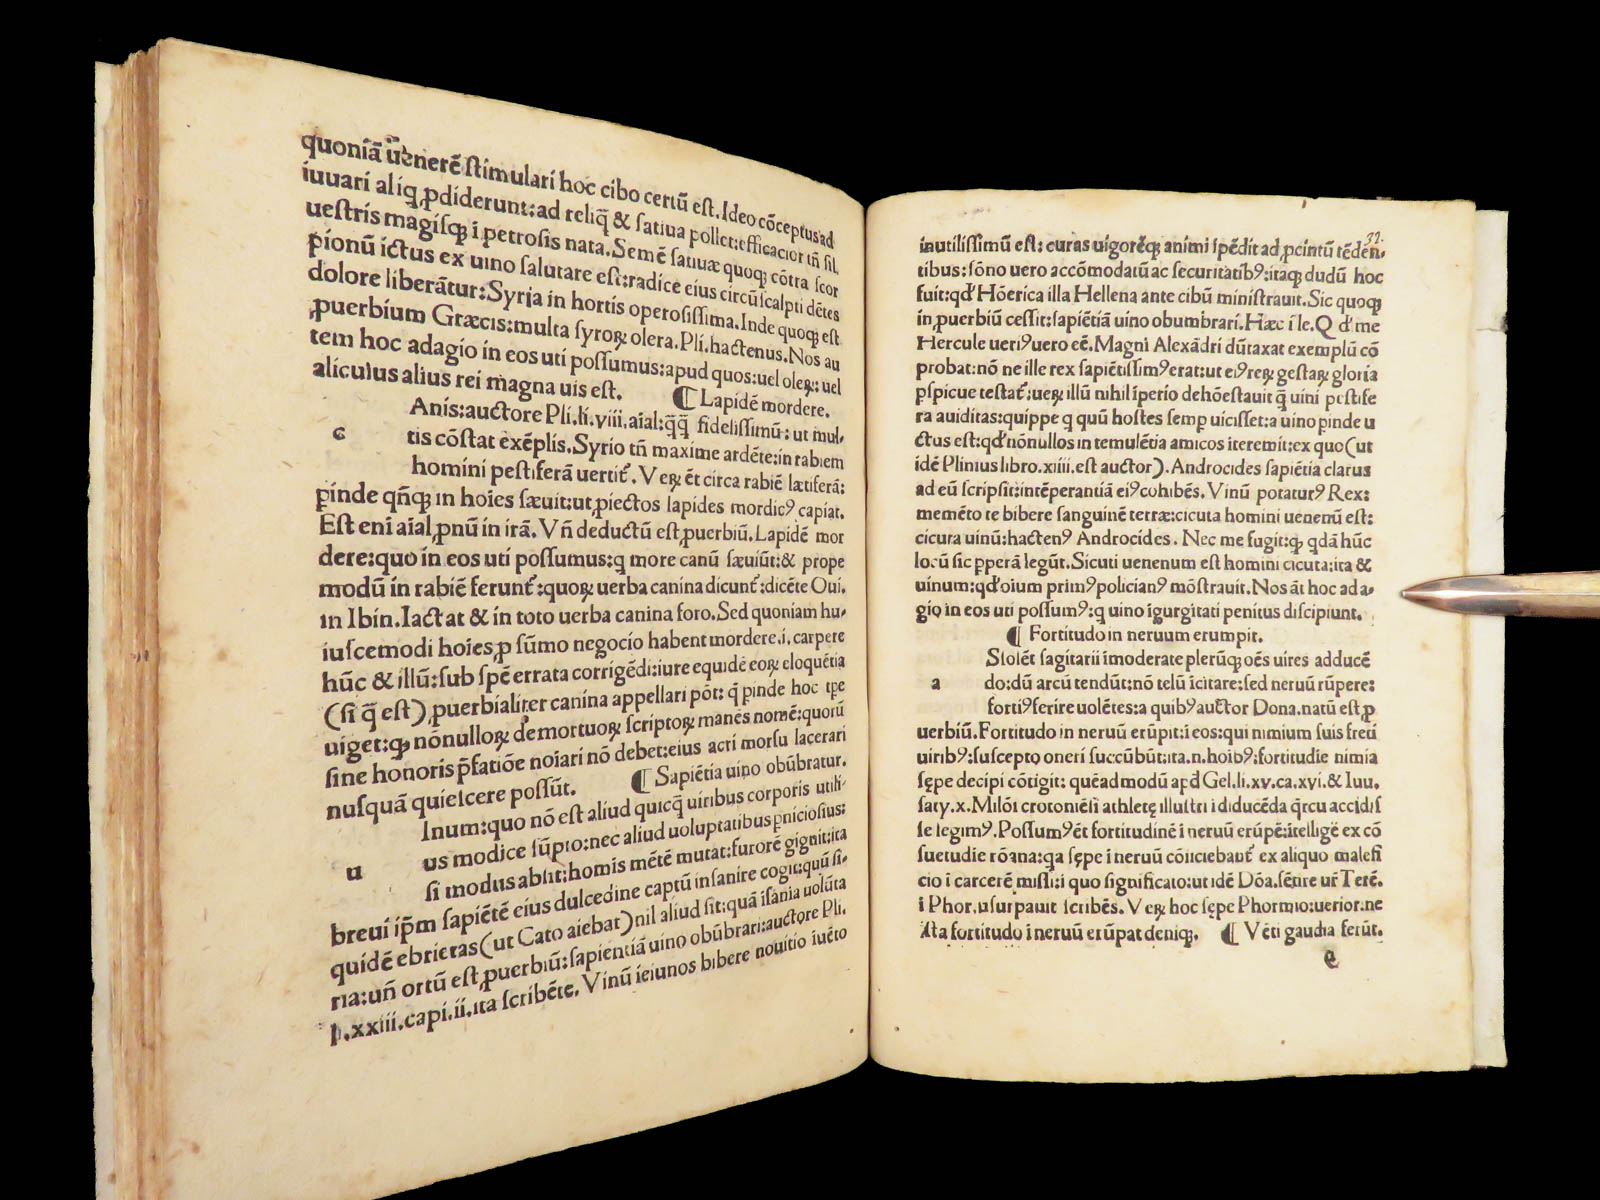 quoniā uenerē stimulari hoc cibo certū est. Ideo cōceptus ad
iuuari aliq̨ ꝓdiderunt: ad reliq̄ & satiua pollet: efficacior tn̄ sil
uestris magisqꝫ i petrosis nata. Semē satiuæ quoqꝫ cōtra scor
pionū ictus ex uino salutare est: radice eius circūscalpti dētes
dolore liberātur: Syria in hortis operosissima. Inde quoqꝫ est
ꝓuerbium Græcis: multa syroꝝ olera. Pli. hactenus. Nos au
tem hoc adagio in eos uti possumus: apud quos: uel oleꝝ: uel
aliculus alius rei magna uis est. ¶ Lapidē mordere.
Anis: auctore Pli. li. viii. aīal: q̄q̄ fidelissimū: ut mul-
c tis cōstat exēplis. Syrio tn̄ maxime ardēte: in rabiem
homini pestiferā uertit᷑. Veꝝ ēt circa rabiē lætiferā:
ꝑinde qn̄qꝫ in hoīes sæuit: ut, ꝓiectos lapides mordicꝰ capiat.
Est eni aīal ꝓnū in irā. Vn̄ deductū est ꝓuerbiū. Lapidē mor
dere: quo in eos uti possumus: q more canū sæuiūt: & prope
modū in rabiē ferunt᷑: quoꝝ uerba canina dicunt᷑: dicēte Oui.
in Ibin. Iactat & in toto uerba canina foro. Sed quoniam hu-
iuscemodi hoīes, ꝑ sūmo negocio habent mordere. i. carpere
hūc & illū: sub spē errata corrigēdi: iure equidē eoꝝ eloquētia
(si q̄ est), ꝓuerbialiter canina appellari pōt: q̄ ꝑinde hoc tꝑe
uiget: qꝫ nōnulloꝝ demortuoꝝ scriptoꝝ manes nomē: quorū
sine honoris p̄fatiōe noiari nō debet: eius acri morsu lacerari
nusquā quiescere possūt. ¶ Sapiētia uino obūbratur.
Inum: quo nō est aliud quicq̄ uiribus corporis utili-
u us modice sūpto: nec aliud uoluptatibus ꝑniciosius:
si modus absit: homis mētē mutat: furorē gignit: ita
breui ip̄m sapiētē eius dulcedine captū insanire cogit: quū si-
quidē ebrietas (ut Cato aiebat) nil aliud sit: quā isānia uolūta
ria: un̄ ortū est ꝓuerbiū: sapientiā uino obūbrari: auctore Pli.
l. xxiii. capi. ii. ita scribēte. Vinū ieiunos bibere nouitio iuēto
32.
inutilissimū est: curas uigorēqꝫ animi īpēdit ad ꝓcintū tēden-
tibus: sōno uero accōmodatū ac securitatibꝰ: itaqꝫ dudū hoc
fuit: qd̓ Hōerica illa Hellena ante cibū ministrauit. Sic quoqꝫ
in ꝓuerbiū cessit: sapiētiā uino obumbrari. Hæc ille. Q d̓ me
Hercule ueriꝰ uero eē. Magni Alexādri dūtaxat exemplū cō
probat: nō ne ille rex sapiētissimꝰ erat: ut eiꝰ reꝝ gestaꝝ gloria
ꝑspicue testat᷑: ueꝝ illū nihil īperio dehōestauit q̄ uini pestife
ra auiditas: quippe q quū hostes semp uicisset: a uino ꝑinde u
ctus est: qd̓ nōnullos in temulētia amicos iteremit: ex quo (ut
idē Plinius libro. xiiii. est auctor). Androcides sapiētia clarus
ad eū scripsit: intēperantiā eiꝰ cohibēs. Vinū potaturꝰ Rex:
memēto te bibere sanguinē tetræ: cicuta homini uenenū est:
cicura uinū: hactenꝰ Androcides. Nec me fugit: qꝫ qdā hūc
locū sic ꝓperā legūt. Sicuti uenenum est homini cicuta: ita &
uinum: qd̓ oium primꝰ policianꝰ mōstrauit. Nos āt hoc ada-
gio in eos uti possumꝰ: q uino īgurgitati penitus discipiunt.
¶ Fortitudo in neruum erumpit.
Slolēt sagitarii īmoderate plerūqꝫ oēs uires adducē
a do: dū arcū tendūt: nō telū īcitare: sed neruū rūpere:
fortiꝰ ferire uolētes: a quibꝰ auctor Dona. natū est, ꝑ
uerbiū. Fortitudo in neruū erūpit: i eos: qui nimium suis freti
uiribꝰ: suscepto oneri succūbūt: ita. n. hoibꝰ: fortitudie nimia
sępe decipi cōtigit: quēadmodū apd̓ Gel. li. xv. ca. xvi. & Iuu.
saty. x. Milōi crotoniēsi athletę illustri i diducēda q̄rcu accidis
se legimꝰ. Possumꝰ ēt fortitudinē i neruū erūpē: itelligē ex cō
suetudie rōana: qa sępe i neruū cōiiciebant᷑ ex aliquo malefi
cio i carcerē missi: i quo significato: ut idē Dōa. sētire ur᷑ Terē.
i Phor. usurpauit scribēs. Veꝝ hoc sępe Phormio: uerior: ne
ista fortitudo i neruū erūpat deniqꝫ. ¶ Vēti gaudia ferūt.
e